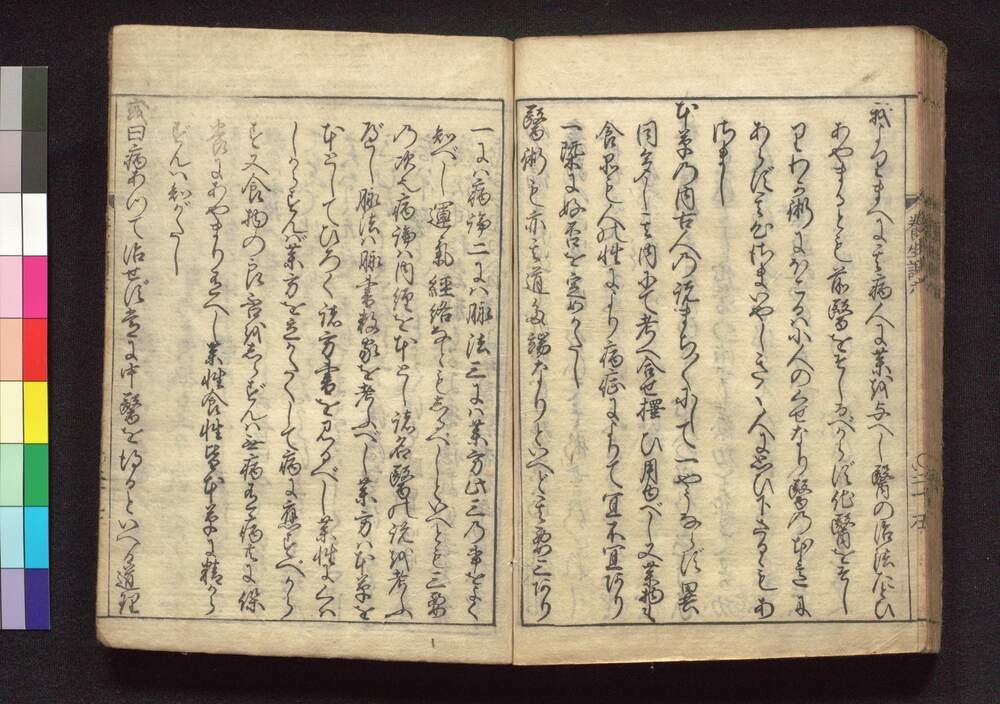 我よりまへに其病人に薬を与へし醫の治法たとひ
あやまるとも前醫をそしるべからず他醫をそし
りわが術にほこるは小人のくせなり醫の本意に
あらず其心ざまいやしきく人に思ひ下さるゝもあ
さまし
本草の内古人の説まち〳〵にして一やうならず異
同多し其内にて考へ合せ擇ひ用ゆべし又薬物も
食品も人の性により病症によりて宜不宜あり
一槩に好否を定めがたし
醫術も亦其道多端なりといへど其要三あり
一には病論二には脉法三には薬方此三の事をよく
知べし運氣經絡などもしるべしといへとも三要
の次也病論は内經を本とし諸名醫の説を考ふ
べし脉法は脉書数家を考ふべし薬方は本草を
本としてひろく諸方書を見るべし薬性にくは
しからずんば薬方を立がたくして病に應ずべから
ず又食物の良否をしらずんは無病有病共に保
養にあやまり有べし薬性食性皆本草に精から
ずんば知がたし
或曰病あつて治せず常に中醫を得るといへる道理
養生訓六
〇二十五